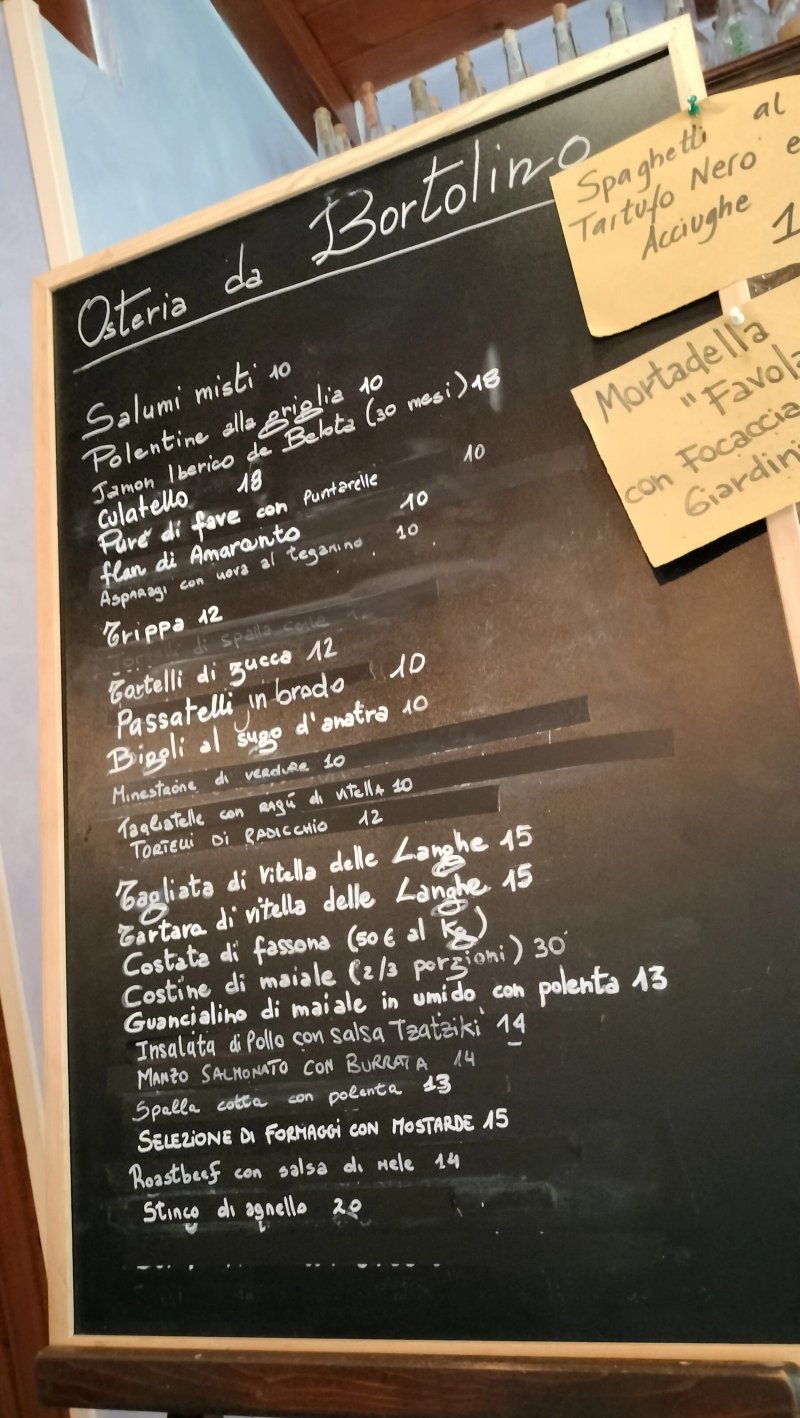 Osteria da Bortolino
Salumi misti 10
Polentine alla griglia 10
Jamon Iberico de Belota (30 mesi) 18
Culatello 18
Puré di fave con Puntarelle 10
flan di Amaranto 10
Asparagi con uova al teganino 10
Trippa 12
Tortelli di spalla cotta 12
Tortelli di zucca 12
Passatelli in brodo 10
Bigoli al sugo d'anatra 10
Minestrone di verdure 10
Tagliatelle con ragú di vitella 10
Tortelli di Radicchio 12
Tagliata di vitella delle Langhe 15
Tartara di vitella delle Langhe 15
Costata di fassona (50 € al kg)
Costine di maiale (2/3 porzioni) 30
Guancialino di maiale in umido con polenta 13
Insalata di Pollo con salsa Tzatziki 14
Manzo Salmonato con Burrata 14
Spalla cotta con polenta 13
SELEZIONE DI FORMAGGI CON MOSTARDE 15
Roastbeef con salsa di mele 14
Stinco di agnello 20
Spaghetti al
Tartufo Nero e
Acciughe 1
Mortadella
"Favola
con Focaccia
Giardini